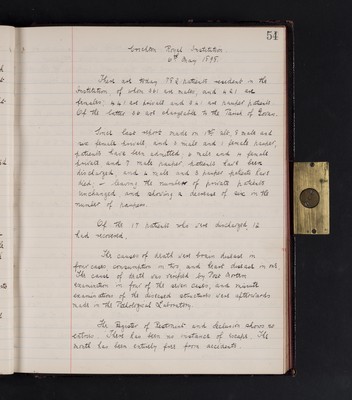 54
Crichton Royal Institution
6th May 1895.
There are today 782 patients resident in the
Institution of whom 321 are males, and 461 are
females; 441 are private and 341 are pauper patients.
Of the latter 36 not chargeable to the Parish of
Since last report made on 1st ult, 8 male and
female private, and 3 male and 1 female pauper,
patients have been admitted; 6 male and female
private and 7 male pauper patients have been
discharged; and 4 male and 3 pauper patients have
died, – leaving the number of private patients
unchanged, and showing a decrease of six in the
number of paupers.
Of the 15 patients who were discharged, 12
had recovered.
The causes of death were brain disease in
four cases, consumption in two, and heart disease in one.
The cause of death was verified by Post Mortem
examination in four of the seven cases, and minute
examinations of the diseased structures were afterwards
made in the Pathological Laboratory.
The Register of Restraint and Seclusion shows no
entries. There has been no instance of escape. The
month has been entirely free from accidents.